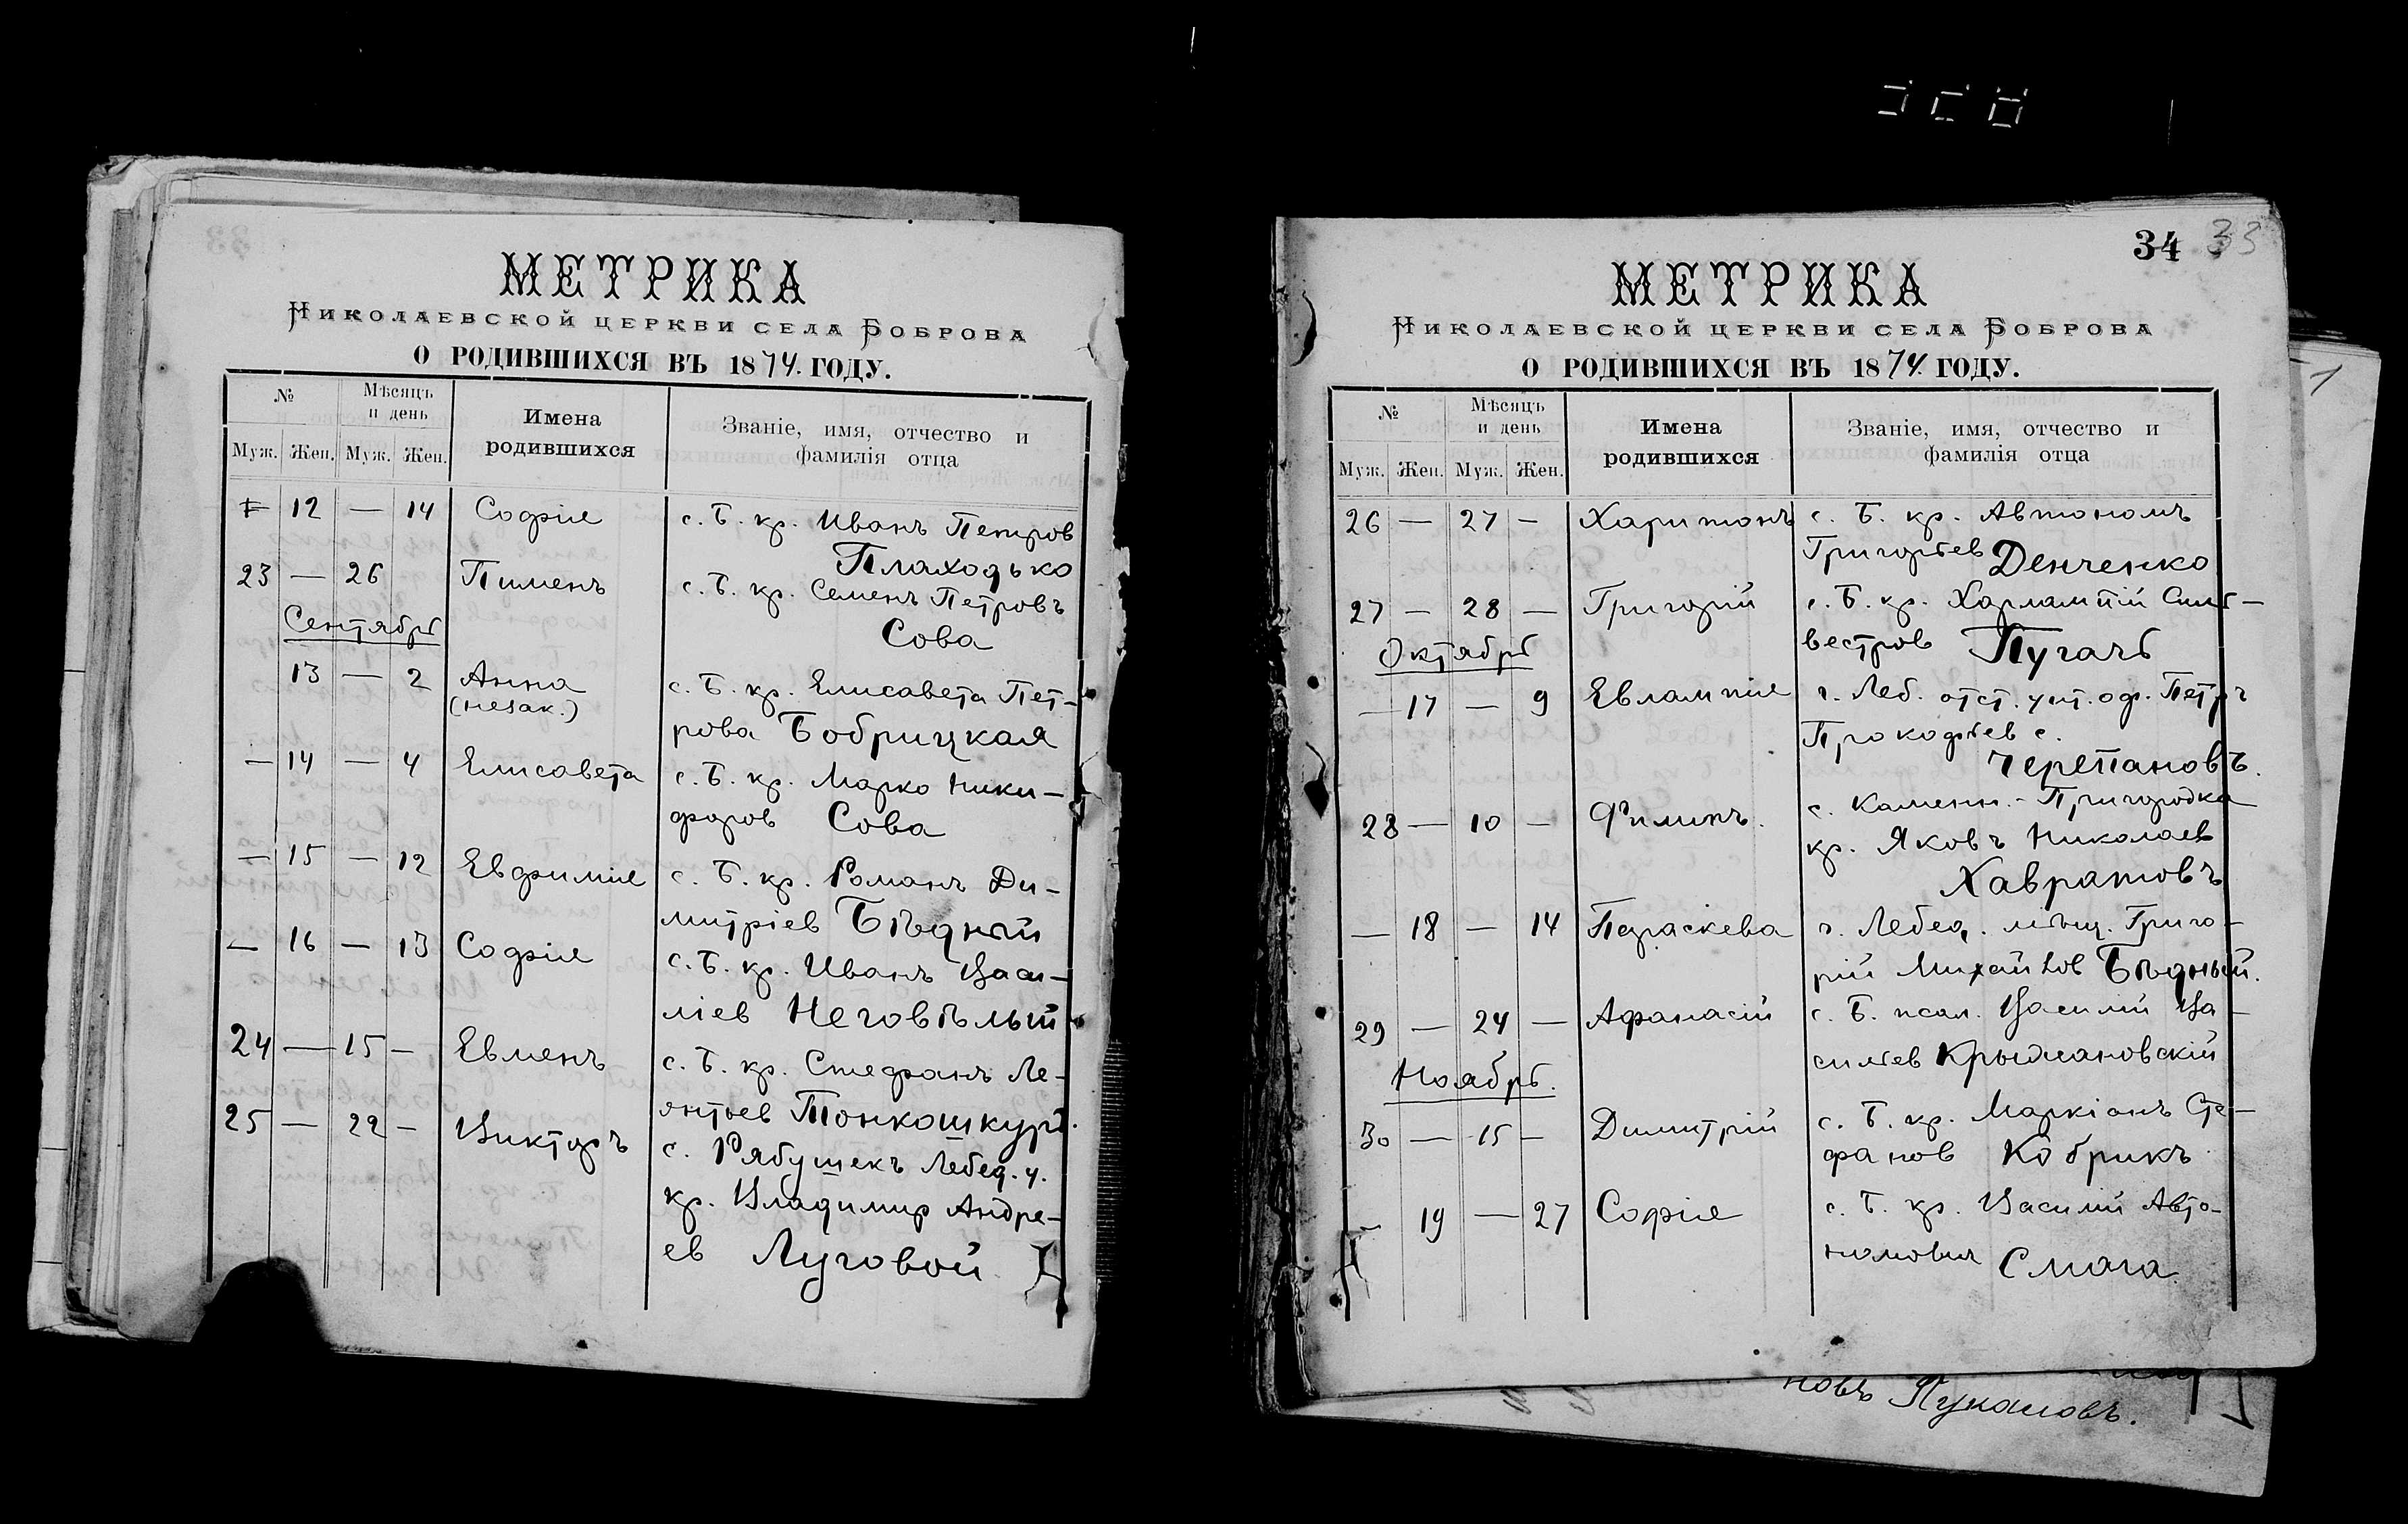 МЕТРИКА
Николаевской церкви села Боброва
О РОДИВШИХСЯ ВЪ 1874. ГОДУ.
№ Мѣсяцъ и день Имена родившихся Званіе, имя, отчество и фамилія отца
Муж. Жен. Муж. Жен.
12 — 14 Софія с. Б. кр. Иванъ Петров
Плаходько
23 — 26 Пименъ с. Б. кр. Семенъ Петровъ
Сова
Сентябрь
13 — 2 Анна с. Б. кр. Елисавета Пет-
(незак.) рова Бобрицкая
— 14 — 4 Елисавета с. Б. кр. Марко Ники-
форов Сова
— 15 — 12 Евфимія с. Б. кр. Романъ Ди-
митріев Бѣдный
— 16 — 13 Софія с. Б. кр. Иванъ Васи-
ліев Неговѣлый
24 — 15 — Евменъ с. Б. кр. Стефанъ Ле-
онтьев Тонкошкур.
25 — 22 — Викторъ с. Рябушекъ Лебед. у.
кр. Владимир Андре-
ев Луговой
34 33
МЕТРИКА
Николаевской церкви села Боброва
О РОДИВШИХСЯ ВЪ 1874. ГОДУ.
№ Мѣсяцъ и день Имена родившихся Званіе, имя, отчество и фамилія отца
Муж. Жен. Муж. Жен.
26 — 27 — Харитонъ с. Б. кр. Автономъ
Григорьев Денченко
27 — 28 — Григорій с. Б. кр. Харлампій Силь-
вестров Пугачь
Октябрь
— 17 — 9 Евлампія г. Леб. отст. унт. оф. Петръ
Прокофьев с.
Черепановъ.
28 — 10 — Филипъ. с. Каменн.-Пригородка
кр. Яковъ Николаев
Хавратовъ
— 18 — 14 Параскева г. Лебед. мѣщ. Григо-
рій Михайлов Бѣдный.
29 — 24 — Афанасій с. Б. псал. Василій Ва-
сильев Крыжановскій
Ноябрь.
30 — 15 — Димитрій с. Б. кр. Маркіанъ Сте-
фанов Кобрикъ
— 19 — 27 Софія с. Б. кр. Василий Авто-
номовичъ Смага
новъ Пукаловъ.